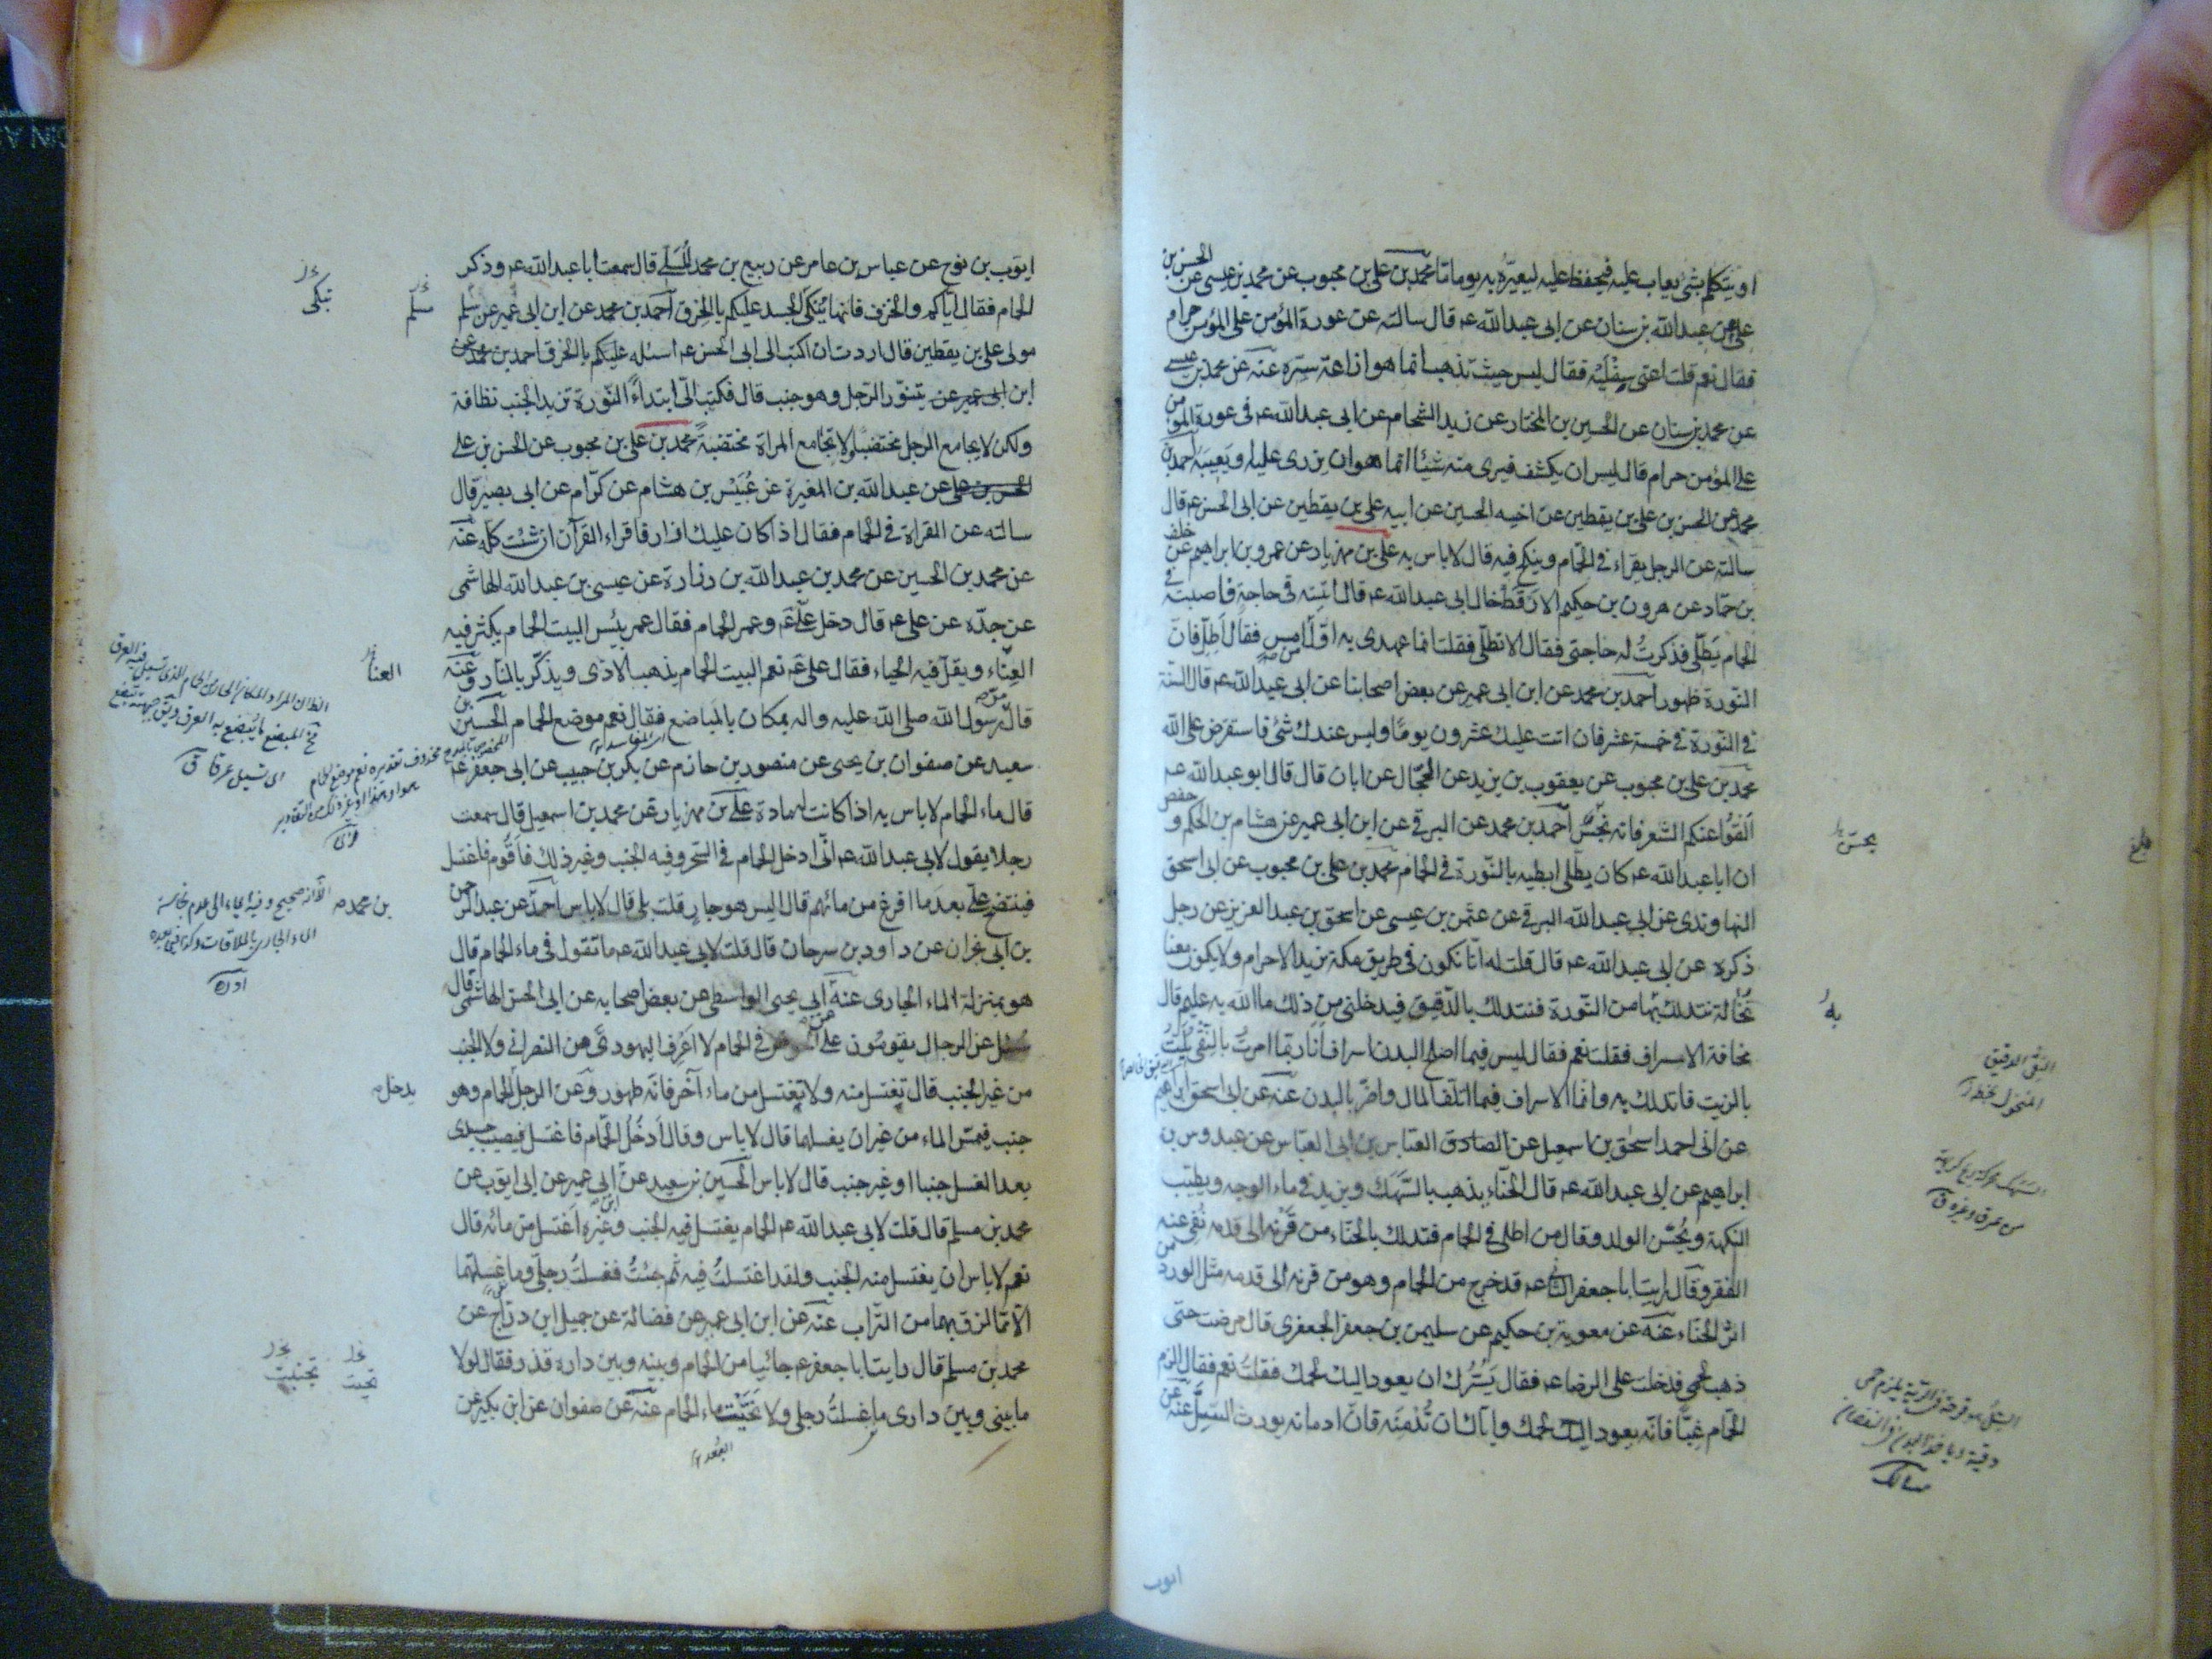 او يتكلم بشئ يعاب عليه فيحفظ عليه ليعيره به يوما ما محمد بن على بن محبوب عن محمد بن عيسى عن الحسن بن
على عن عبد الله بن سنان عن ابى عبد الله ع قال سالته عن عورة المؤمن على المؤمن حرام
فقال نعم قلت اعنى سفليه فقال ليس حيث تذهب انما هو اذاعة سره عنه عن محمد بن عيسى
عن محمد بن سنان عن الحسين بن المختار عن زيد الشحام عن ابى عبد الله ع فى عورة المؤمن
على المؤمن حرام قال ليس ان يكشف فيرى منه شيئا انما هو ان يزرى عليه او يعيبه احمد بن
محمد عن الحسن بن على بن يقطين عن اخيه الحسين عن ابيه على بن يقطين عن ابى الحسن ع قال
سالته عن الرجل يقراء فى الحمام وينكح فيه قال لا باس به على بن مهزيار عن عمرو بن ابراهيم عن خلف
بن حماد عن هرون بن حكيم الارقط خال ابى عبد الله ع قال اتيته فى حاجة فاصبته فى
الحمام يطلى فذكرت له حاجتى فقال الا تطلى فقلت انما عهدى به اول من امس فقال اطل فان
النورة طهور احمد بن محمد عن ابن ابى عمير عن بعض اصحابنا عن ابى عبد الله ع قال السنة
فى النورة فى خمسة عشر فان اتت عليك عشرون يوما وليس عندك شئ فاستقرض على الله
محمد بن على بن محبوب عن يعقوب بن يزيد عن الحجال عن ابان قال قال ابو عبد الله ع
القوا عنكم الشعر فانه نجس احمد بن محمد عن البرقى عن ابن ابى عمير عن هشام بن الحكم و حفص
ان ابا عبد الله ع كان يطلى ابطيه بالنورة فى الحمام محمد بن على بن محبوب عن ابى اسحق
النهاوندى عن ابى عبد الله البرقى عن عثمن بن عيسى عن اسحق بن عبد العزيز عن رجل
ذكره عن ابى عبد الله ع قال قلت له انا نكون فى طريق مكة نريد الاحرام ولا يكون معنا
نخالة نتدلك بها من النورة فنتدلك بالدقيق فيدخلنى من ذلك ما الله به عليم قال
مخافة الاسراف فقلت نعم فقال ليس فيما اصلح البدن اسراف انا ربما امرت بالنقى يلت
بالزيت فاتدلك به وانما الاسراف فيما اتلف المال واضر بالبدن عنه عن ابى اسحق ابراهيم
عن ابى احمد اسحق بن اسمعيل عن الصادق العباس بن ابى العباس عن عبدوس بن
ابراهيم عن ابى عبد الله ع قال الحناء يذهب بالسهك ويزيد فى ماء الوجه ويطيب
النكهة ويحسن الولد وقال من اطلى فى الحمام فتدلك بالحناء من قرنه الى قدمه نفى عنه
الفقر وقال رايت ابا جعفر الثانى ع قد خرج من الحمام وهو من قرنه الى قدمه مثل الورد من
اثر الحناء عنه عن معوية بن حكيم عن سليمن بن جعفر الجعفرى قال مرضت حتى
ذهب لحمى فدخلت على الرضا ع فقال يسرك ان يعود اليك لحمك فقلت نعم فقال الزم
الحمام غبا فانه يعود اليك لحمك واياك ان تدمنه فان ادمانه يورث السل عنه عن
النقى الدقيق
المنخول
ايوب
ايوب بن نوح عن عباس بن عامر عن ربيع بن محمد المسلى قال سمعت ابا عبد الله ع وذكر
الحمام فقال اياكم والخزف فانها ينكى الجسد عليكم بالخرق احمد بن محمد عن ابن ابى عمير عن سلم
مولى على بن يقطين قال اردت ان اكتب الى ابى الحسن ع اسئله عليكم بالخرق احمد بن محمد عن
ابن ابى عمير عن يتنور الرجل وهو جنب قال فكتب الى ابتداء النورة تزيد الجنب نظافة
ولكن لا يجامع الرجل مختضبا ولا تجامع المراة مختضبة محمد بن على بن محبوب عن الحسن بن على
الحسن بن على عن عبد الله بن المغيرة عن عبيس بن هشام عن كرام عن ابى بصير قال
سالته عن القراة فى الحمام فقال اذا كان عليك ازار فاقراء القرآن ان شئت كله عنه
عن محمد بن الحسين عن محمد بن عبد الله بن زرارة عن عيسى بن عبد الله الهاشمى
عن جده عن على ع قال دخل على ع وعمر الحمام فقال عمر بئس البيت الحمام يكثر فيه
العناء ويقل فيه الحياء فقال على ع نعم البيت الحمام يذهب الاذى ويذكر بالنار وعنه
قال مر رسول الله صلى الله عليه واله بمكان بالمباضع فقال نعم موضع الحمام الحسين بن
سعيد عن صفوان بن يحيى عن منصور بن حازم عن بكر بن حبيب عن ابى جعفر ع
قال ماء الحمام لا باس به اذا كانت له مادة على بن مهزيار عن محمد بن اسمعيل قال سمعت
رجلا يقول لابى عبد الله ع انى ادخل الحمام فى السحر وفيه الجنب وغير ذلك فاقوم فاغتسل
فينتضح على بعد ما افرغ من مائهم قال اليس هو جار قلت بلى قال لا باس احمد عن عبد الرحمن
بن ابى نجران عن داود بن سرحان قال قلت لابى عبد الله ع ما تقول فى ماء الحمام قال
هو بمنزلة الماء الجارى عنه عن ابى يحيى الواسطى عن بعض اصحابه عن ابى الحسن الهاشمى قال
سئل عن الرجال يقومون على الحوض فى الحمام لا اعرف اليهودى من النصرانى ولا الجنب
من غير الجنب قال تغتسل منه ولا تغتسل من ماء آخر فانه طهور وعن الرجل الحمام وهو
جنب فيمس الماء من غير ان يغسلهما قال لا باس وقال ادخل الحمام فاغتسل فيصيب جسدى
بعد الغسل جنبا او غير جنب قال لا باس الحسين بن سعيد عن ابن ابى عمير عن ابى ايوب عن
محمد بن مسلم قال قلت لابى عبد الله ع الحمام يغتسل فيه الجنب وغيره اغتسل من مائه قال
نعم لا باس ان يغتسل منه الجنب ولقد اغتسلت فيه ثم جئت فغسلت رجلى وما غسلتهما
الا مما لزق بهما من التراب عنه عن ابن ابى عمير عن فضالة عن جميل ابن دراج عن
محمد بن مسلم قال رايت ابا جعفر ع جائيا من الحمام وبينه وبين داره قذر فقال لولا
ما بينى وبين دارى ما غسلت رجلى ولا تجنبت ماء الحمام عنه عن صفوان عن ابن بكير عن
تنكى
مسلم
العنا
بن محمد
يدخل
تجنبت